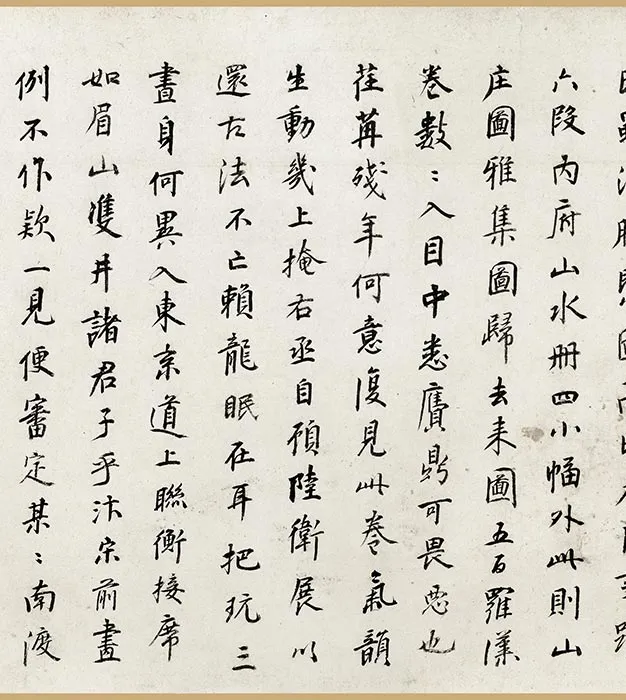 六段内府山水册四小幅外此則山
庄圖雅集圖歸去来圖五百羅漢
卷數〻入目中悉贋鼎可畏惡也
荏苒殘年何意復見此卷氣韻
生動幾上掩右丞自頋陸衛展以
還古法不亡賴龍眠在耳把玩三
晝身何異入東京道上聯衡接席
如眉山雙井諸君子乎汴宋前畫
例不作款一見便審定某〻南渡